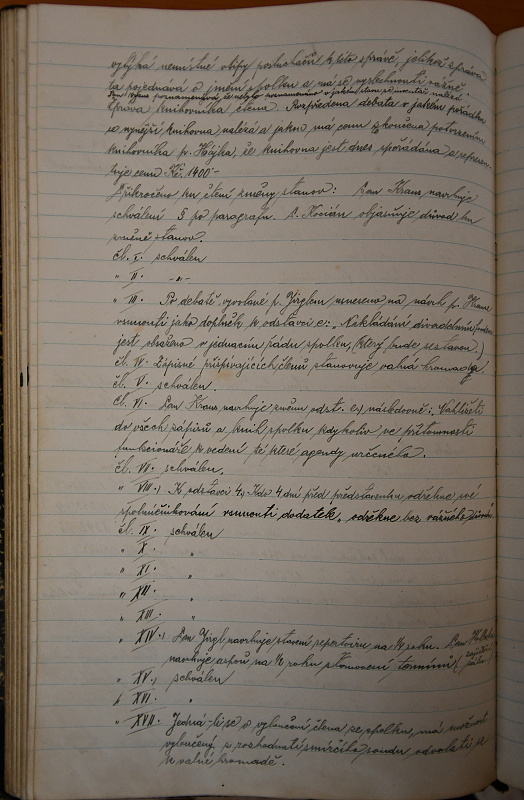 vytýká nemístné vtipy posluchačů k této správě, jelikož zpráva
ta pojednává o jmění spolku a má se vyslechnouti vážně.
Zpráva knihovníka čtena. Rozpředena debata v jakém pořádku
se nynější knihovna nalézá a jakou má cenu skončena potvrzením
knihovníka p. Hájka, že knihovna jest dnes spořádána a represen-
tuje cenu Kč 1400.-
Přikročeno ku čtení změny stanov: Pan Kraus navrhuje
schválení § po paragrafu. P. Kocián objasňuje důvod ku
změně stanov.
čl. I. schválen
" II. -"-
" III. Po debatě, vyvolané p. Jirglem usneseno na návrh p. Krause
vsunouti jako doplněk k odstavci e: "Nakládání divadelními
jest obsaženo v jednacím řádu spolku, (který bude sestaven.)
čl. IV. Zápisné přispívajících členů stanovuje valná hromada.
čl. V. schválen.
čl. VI. Pan Kraus navrhuje změnu odst. e) následovně: "Nahlížeti
do všech zápisů a knih spolku kdykoliv ve přítomnosti
funkcionáře k vedení té které agendy určeného.
čl. VII. schválen.
" VIII.) K odstavci 4. Kdo 4 dní před představením odřekne své
spoluúčinkování vsunouti dodatek, "odřekne bez vážného důvodu.
čl. IX. schválen
" X. "
" XI. "
" XII. "
" XIII. "
" XIV.) Pan Jirgl navrhuje stavení repertoiru na ¼ roku. Pan
navrhuje aspoň na ½ roku
" XV.) schválen
" XVI. "
" XVII. Jedná-li se o vyloučení člena ze spolku, má možnost
vyloučený z rozhodnutí smírčího soudu odvolati se
k valné hromadě.